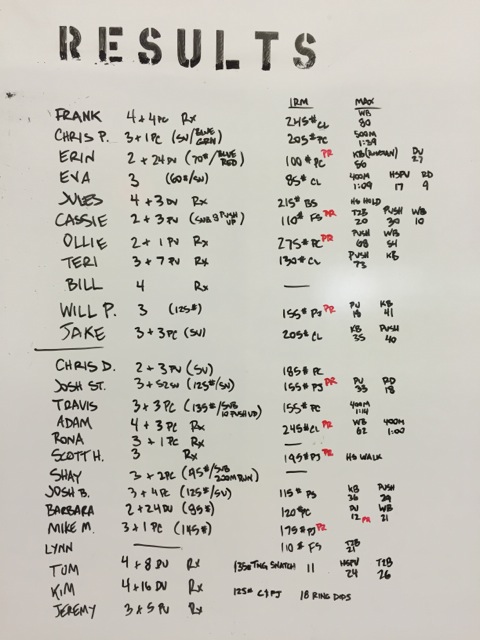 RESULTS
1RM MAX
FRANK 4 + 4 PC Rx 245# CL WB 80
CHRIS P. 3 + 1 PC (SU/BLUE GRN) 205# PC 500M 1:39
ERIN 2 + 24 DU (70#/BLUE RED) 100# PC PR KB 56 DU 27
EVA 3 (60#/SU) 85# CL 400M 1:09 HSPU 17 RD 9
JULES 4 + 3 DU Rx 215# BS HS HOLD
CASSIE 2 + 3 PU (SUB 8 PUSH UP) 110# FS PR T2B 20 PUSH 30 WB 10
OLLIE 2 + 1 PU Rx 275# PC PR PUSH 68 WB 54
TERI 3 + 7 PU Rx 130# CL PUSH 73 KB
BILL 4 Rx —
WILL P. 3 (125#) 155# PJ PR PU 18 KB 41
JAKE 3 + 3 PC (SU) 205# CL KB 35 PUSH 40
CHRIS D. 2 + 3 PU (SU) 185# PC
JOSH ST. 3 + 52 SU (125#/SU) 155# PJ PR PU 33 RD 18
TRAVIS 3 + 3 PC (135#/SUB 10 PUSH UP) 155# PC 400M 1:14
ADAM 4 + 3 PC Rx 245# CL PR WB 62 400M 1:00
RONA 3 + 1 PC Rx —
SCOTT H. 3 Rx 195# PJ PR HS WALK
SHAY 3 + 2 PC (95#/SUB 200M RUN) —
JOSH B. 3 + 4 PC (125#/SU) 115# PS KB 36 PUSH 29
BARBARA 2 + 24 DU (85#) 120# PC DU 12 PR WB 21
MIKE M. 3 + 1 PC (145#) 175# PJ PR
LYNN — 110# FS T2B 21
TOM 4 + 8 DU Rx 135# TNG SNATCH 11 HSPU 24 T2B 26
KIM 4 + 16 DU Rx 125# C+PJ 18 RING DIPS
JEREMY 3 + 5 PU Rx